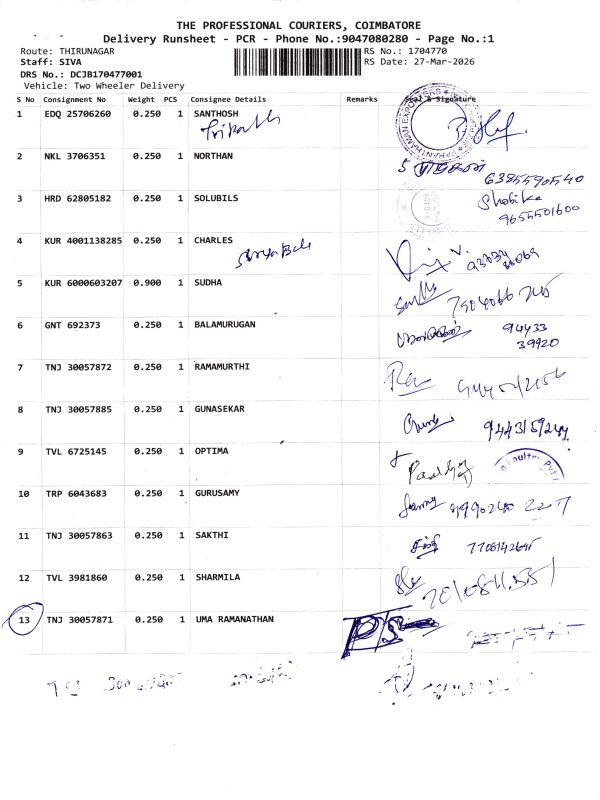 THE PROFESSIONAL COURIERS, COIMBATORE
Delivery Runsheet - PCR - Phone No.:9047080280 - Page No.:1
Route: THIRUNAGAR RS No.: 1704770
Staff: SIVA RS Date: 27-Mar-2026
DRS No.: DCJB170477001
Vehicle: Two Wheeler Delivery
S No Consignment No Weight PCS Consignee Details Remarks Seal & Signature
1 EDQ 25706260 0.250 1 SANTHOSH
2 NKL 3706351 0.250 1 NORTHAN
6385590540
3 HRD 62805182 0.250 1 SOLUBILS Shobika
9655501600
4 KUR 4001138285 0.250 1 CHARLES
5 KUR 6000603207 0.900 1 SUDHA
6 GNT 692373 0.250 1 BALAMURUGAN 94433
39920
7 TNJ 30057872 0.250 1 RAMAMURTHI
8 TNJ 30057885 0.250 1 GUNASEKAR
9 TVL 6725145 0.250 1 OPTIMA Poultry Pvt
10 TRP 6043683 0.250 1 GURUSAMY
11 TNJ 30057863 0.250 1 SAKTHI
12 TVL 3981860 0.250 1 SHARMILA
13 TNJ 30057871 0.250 1 UMA RAMANATHAN